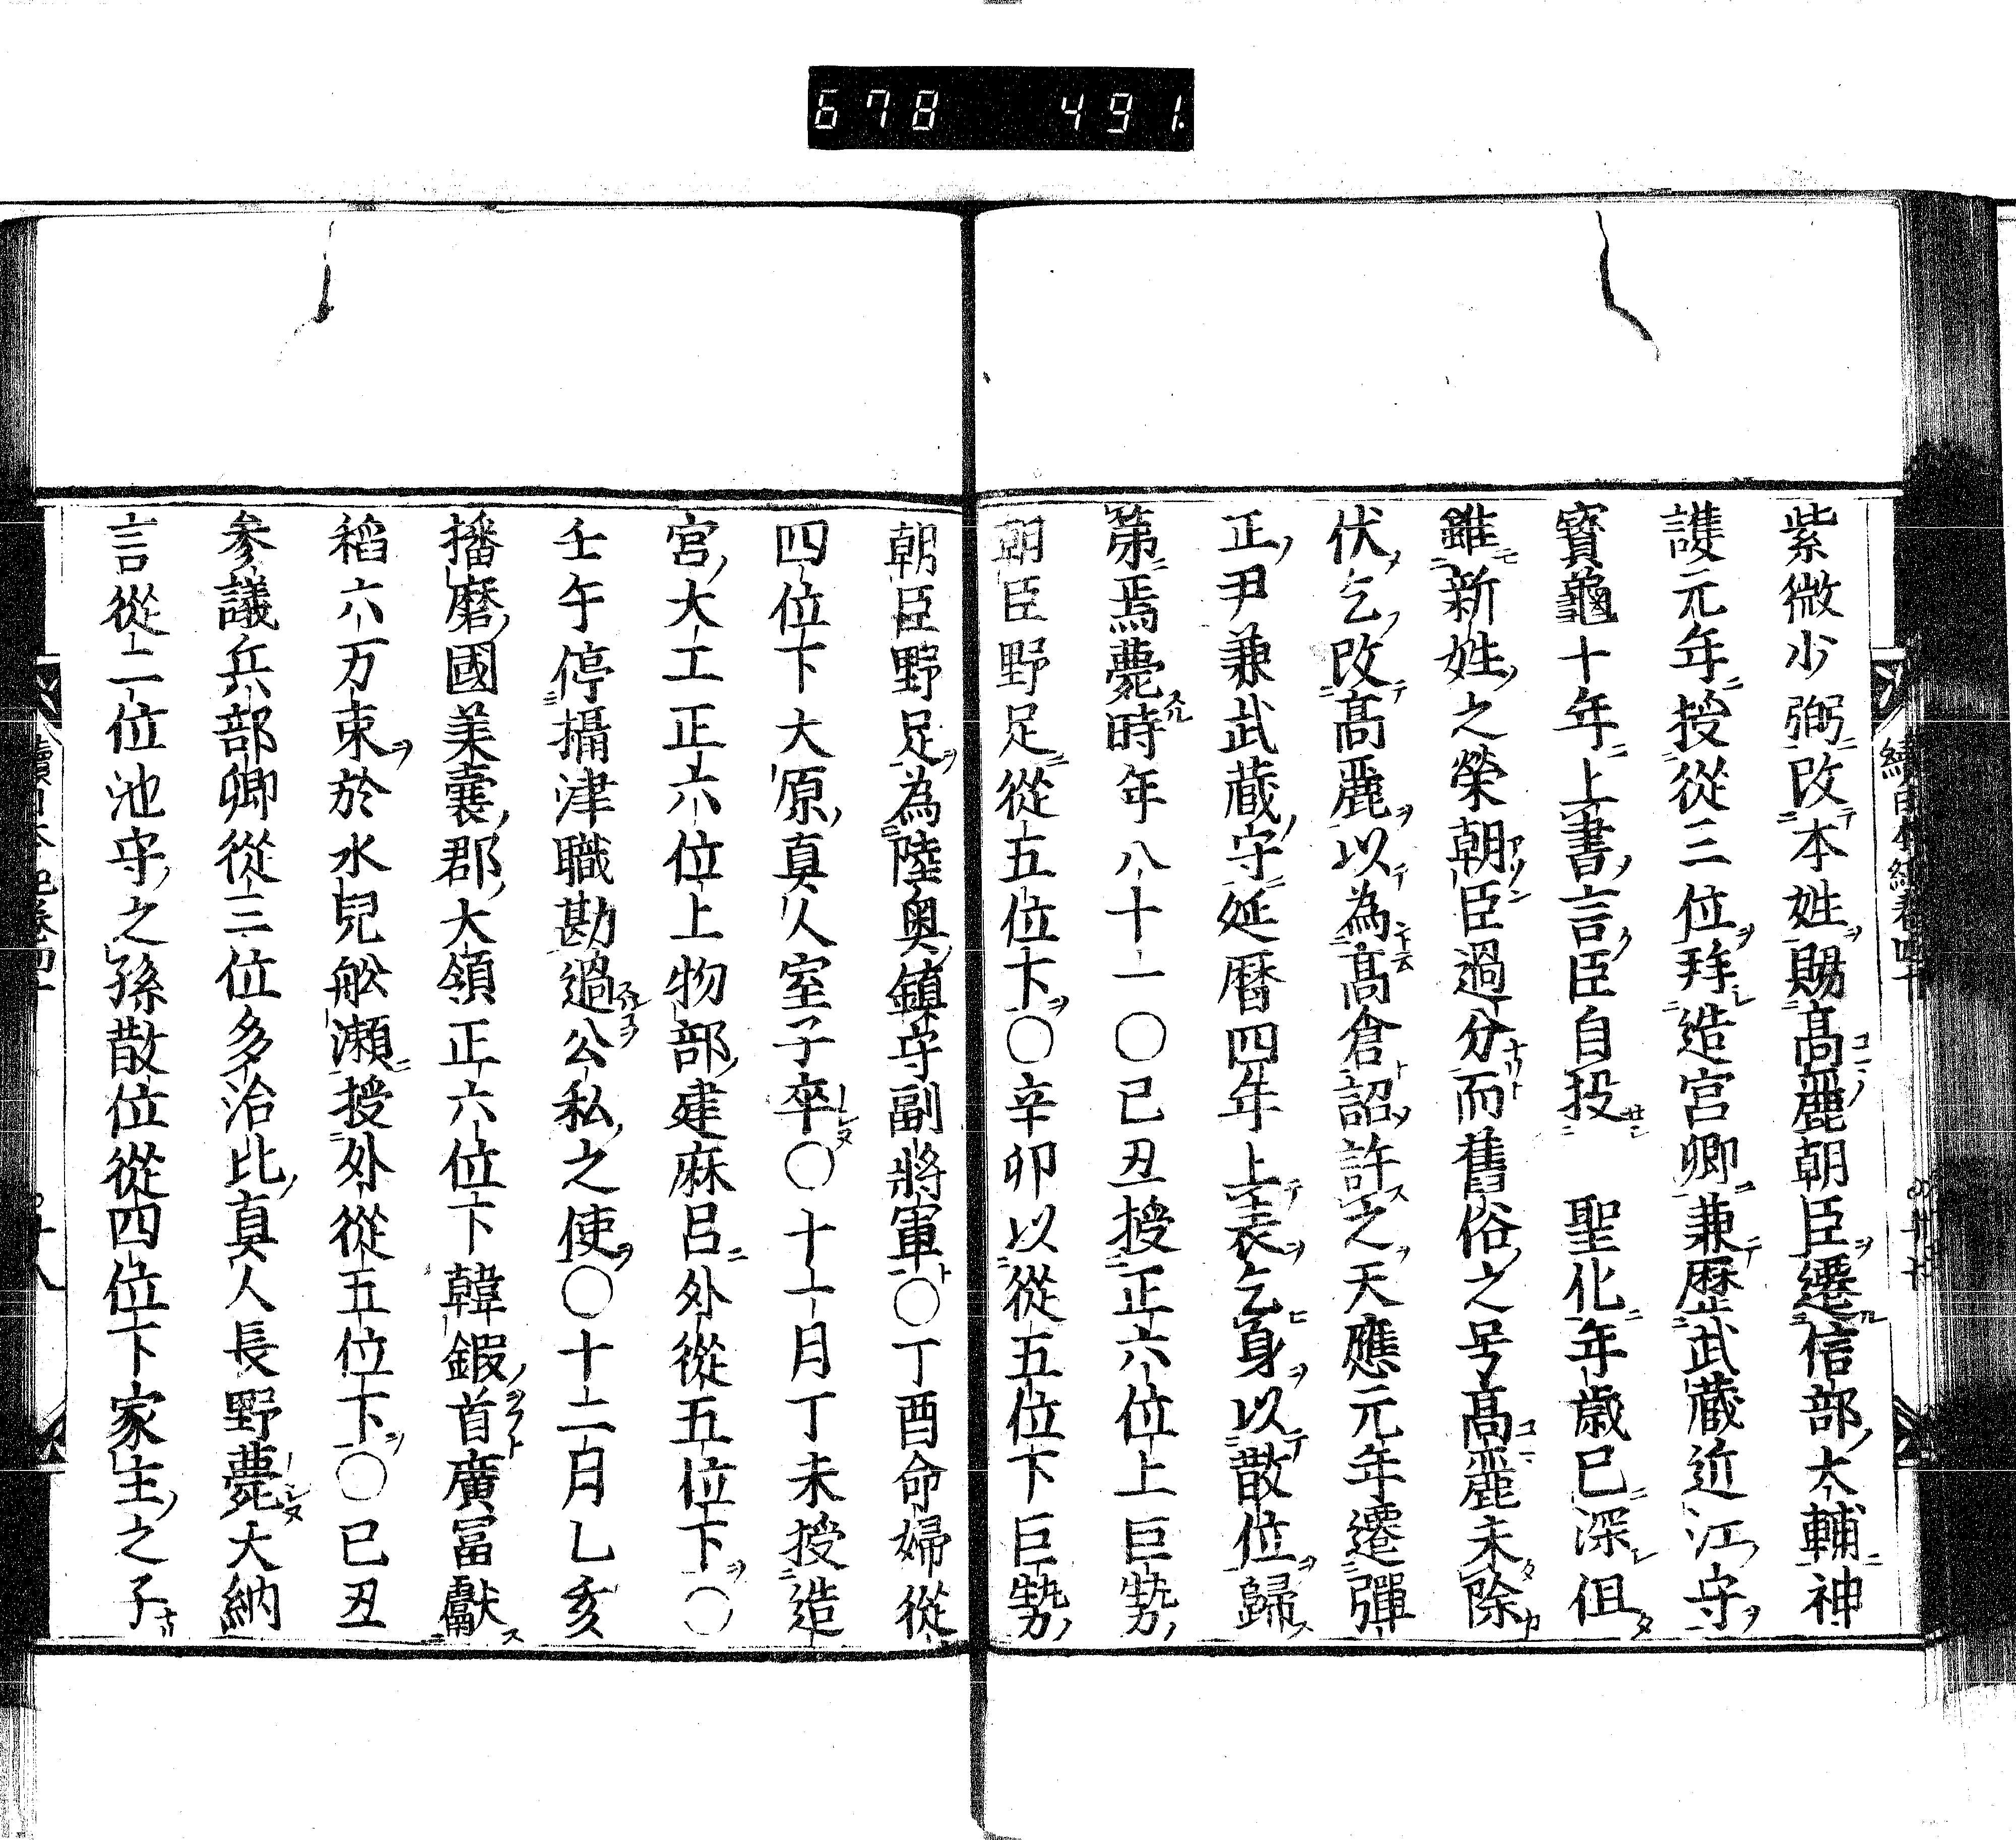 678 491.
紫微少弼改本姓賜高麗朝臣遷信部大輔神
護元年授從三位拜造宮卿兼歷武藏近江守
寶龜十年上書言臣自投 聖化年歲已深但
雖新姓之榮朝臣過分而舊俗之号高麗未除
伏乞改高麗以為高倉詔許之天應元年遷彈
正尹兼武藏守延曆四年上表乞身以散位歸
第焉薨時年八十一〇己丑授正六位上巨勢
朝臣野足從五位下〇辛卯以從五位下巨勢
朝臣野足為陸奥鎮守副將軍〇丁酉命婦從
四位下大原真人室子卒〇十一月丁未授造
宮大工正六位上物部建麻呂外從五位下〇
壬午停攝津職勘過公私之使〇十二月乙亥
播磨國美囊郡大領正六位下韓鍛首廣富獻
稻六万束於水兒舩瀬授外從五位下〇已丑
参議兵部卿從三位多治比真人長野薨大納
言從二位池守之孫散位從四位下家主之子